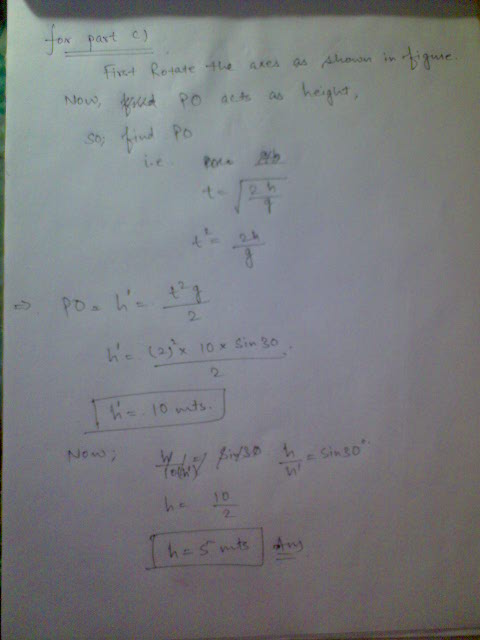 for part c)
First Rotate the axes as shown in figure.
Now, PO acts as height,
so; find PO
i.e.
t = √(2h/g)
t² = 2h/g
⇒ PO = h' = t²g/2
h' = (2)² × 10 × Sin30/2
h' = 10 mts.
Now; h/h' = Sin30°
h = 10/2
h = 5 mts Ans